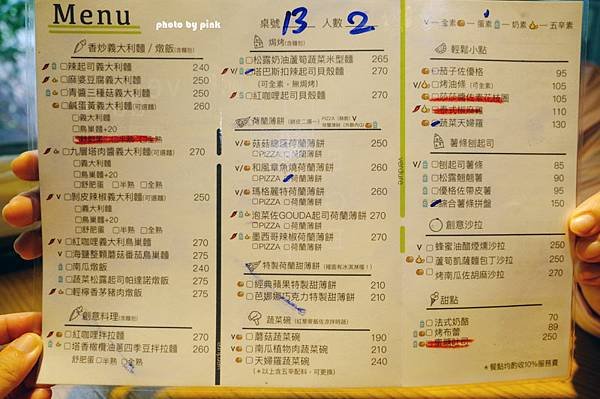 Menu
photo by pink
桌號 13 人數 2
V — 全素 — 蛋素 — 奶素 — 五辛素
香炒義大利麵 / 燉飯(含麵包)
□辣起司義大利麵 240
□麻婆豆腐義大利麵 250
□青醬三種菇義大利麵 250
□鹹蛋黃義大利麵(可選麵) 260
□義大利麵
□鳥巢麵+20
□九層塔肉醬義大利麵(可選麵) 270
□義大利麵
□鳥巢麵+20
□舒肥蛋 □半熟 □全熟
V □剝皮辣椒義大利麵(可選麵) 250
□義大利麵
□鳥巢麵+20
□舒肥蛋 □半熟 □全熟
□紅咖哩義大利鳥巢麵 270
V □海鹽整顆蘑菇番茄鳥巢麵 275
□南瓜燉飯 240
□蔬菜松露起司帕達諾燉飯 275
□輕檸香茅豬肉燉飯 275
創意料理(含麵包)
□紅咖哩拌拉麵 270
□塔香橄欖油蔥四季豆拌拉麵 260
舒肥蛋 □半熟 □全熟
焗烤(含麵包)
□松露奶油蘆筍蔬菜米型麵 265
V/ □塔巴斯扣辣起司貝殼麵 270
(可全素，無焗烤)
□紅咖哩起司貝殼麵 270
荷蘭薄餅(餅皮二選一)
V/ □菇菇總匯荷蘭薄餅 250
□PIZZA □荷蘭薄餅
V/ □和風章魚燒荷蘭薄餅 260
□PIZZA □荷蘭薄餅
V/ □瑪格麗特荷蘭薄餅 260
□PIZZA □荷蘭薄餅
□泡菜佐GOUDA起司荷蘭薄餅 270
□PIZZA □荷蘭薄餅
□墨西哥辣椒荷蘭薄餅 270
□PIZZA □荷蘭薄餅
特製荷蘭甜薄餅(裡面有冰淇淋喔！)
□經典蘋果特製甜薄餅 210
□芭娜娜巧克力特製甜薄餅 210
蔬菜碗
V □蘑菇蔬菜碗 190
V/ □南瓜植物肉蔬菜碗 210
□天婦羅蔬菜碗 240
(＊以上含五辛配料，可更換)
verdure
輕鬆小點
□茄子佐優格 95
V/ □烤油條 (可全素) 105
105
110
□蔬菜天婦羅 130
薯條刨起司
□刨起司薯條 85
□松露翹翹薯 90
□優格佐帶皮薯 90
□綜合薯條拼盤 150
創意沙拉
V □蜂蜜油醋煙燻沙拉 250
□蘆筍凱薩麵包丁沙拉 250
□烤南瓜佐胡麻沙拉 210
甜點
□法式奶酪 70
□烤布蕾 89
90
＊餐點均酌收10%服務費